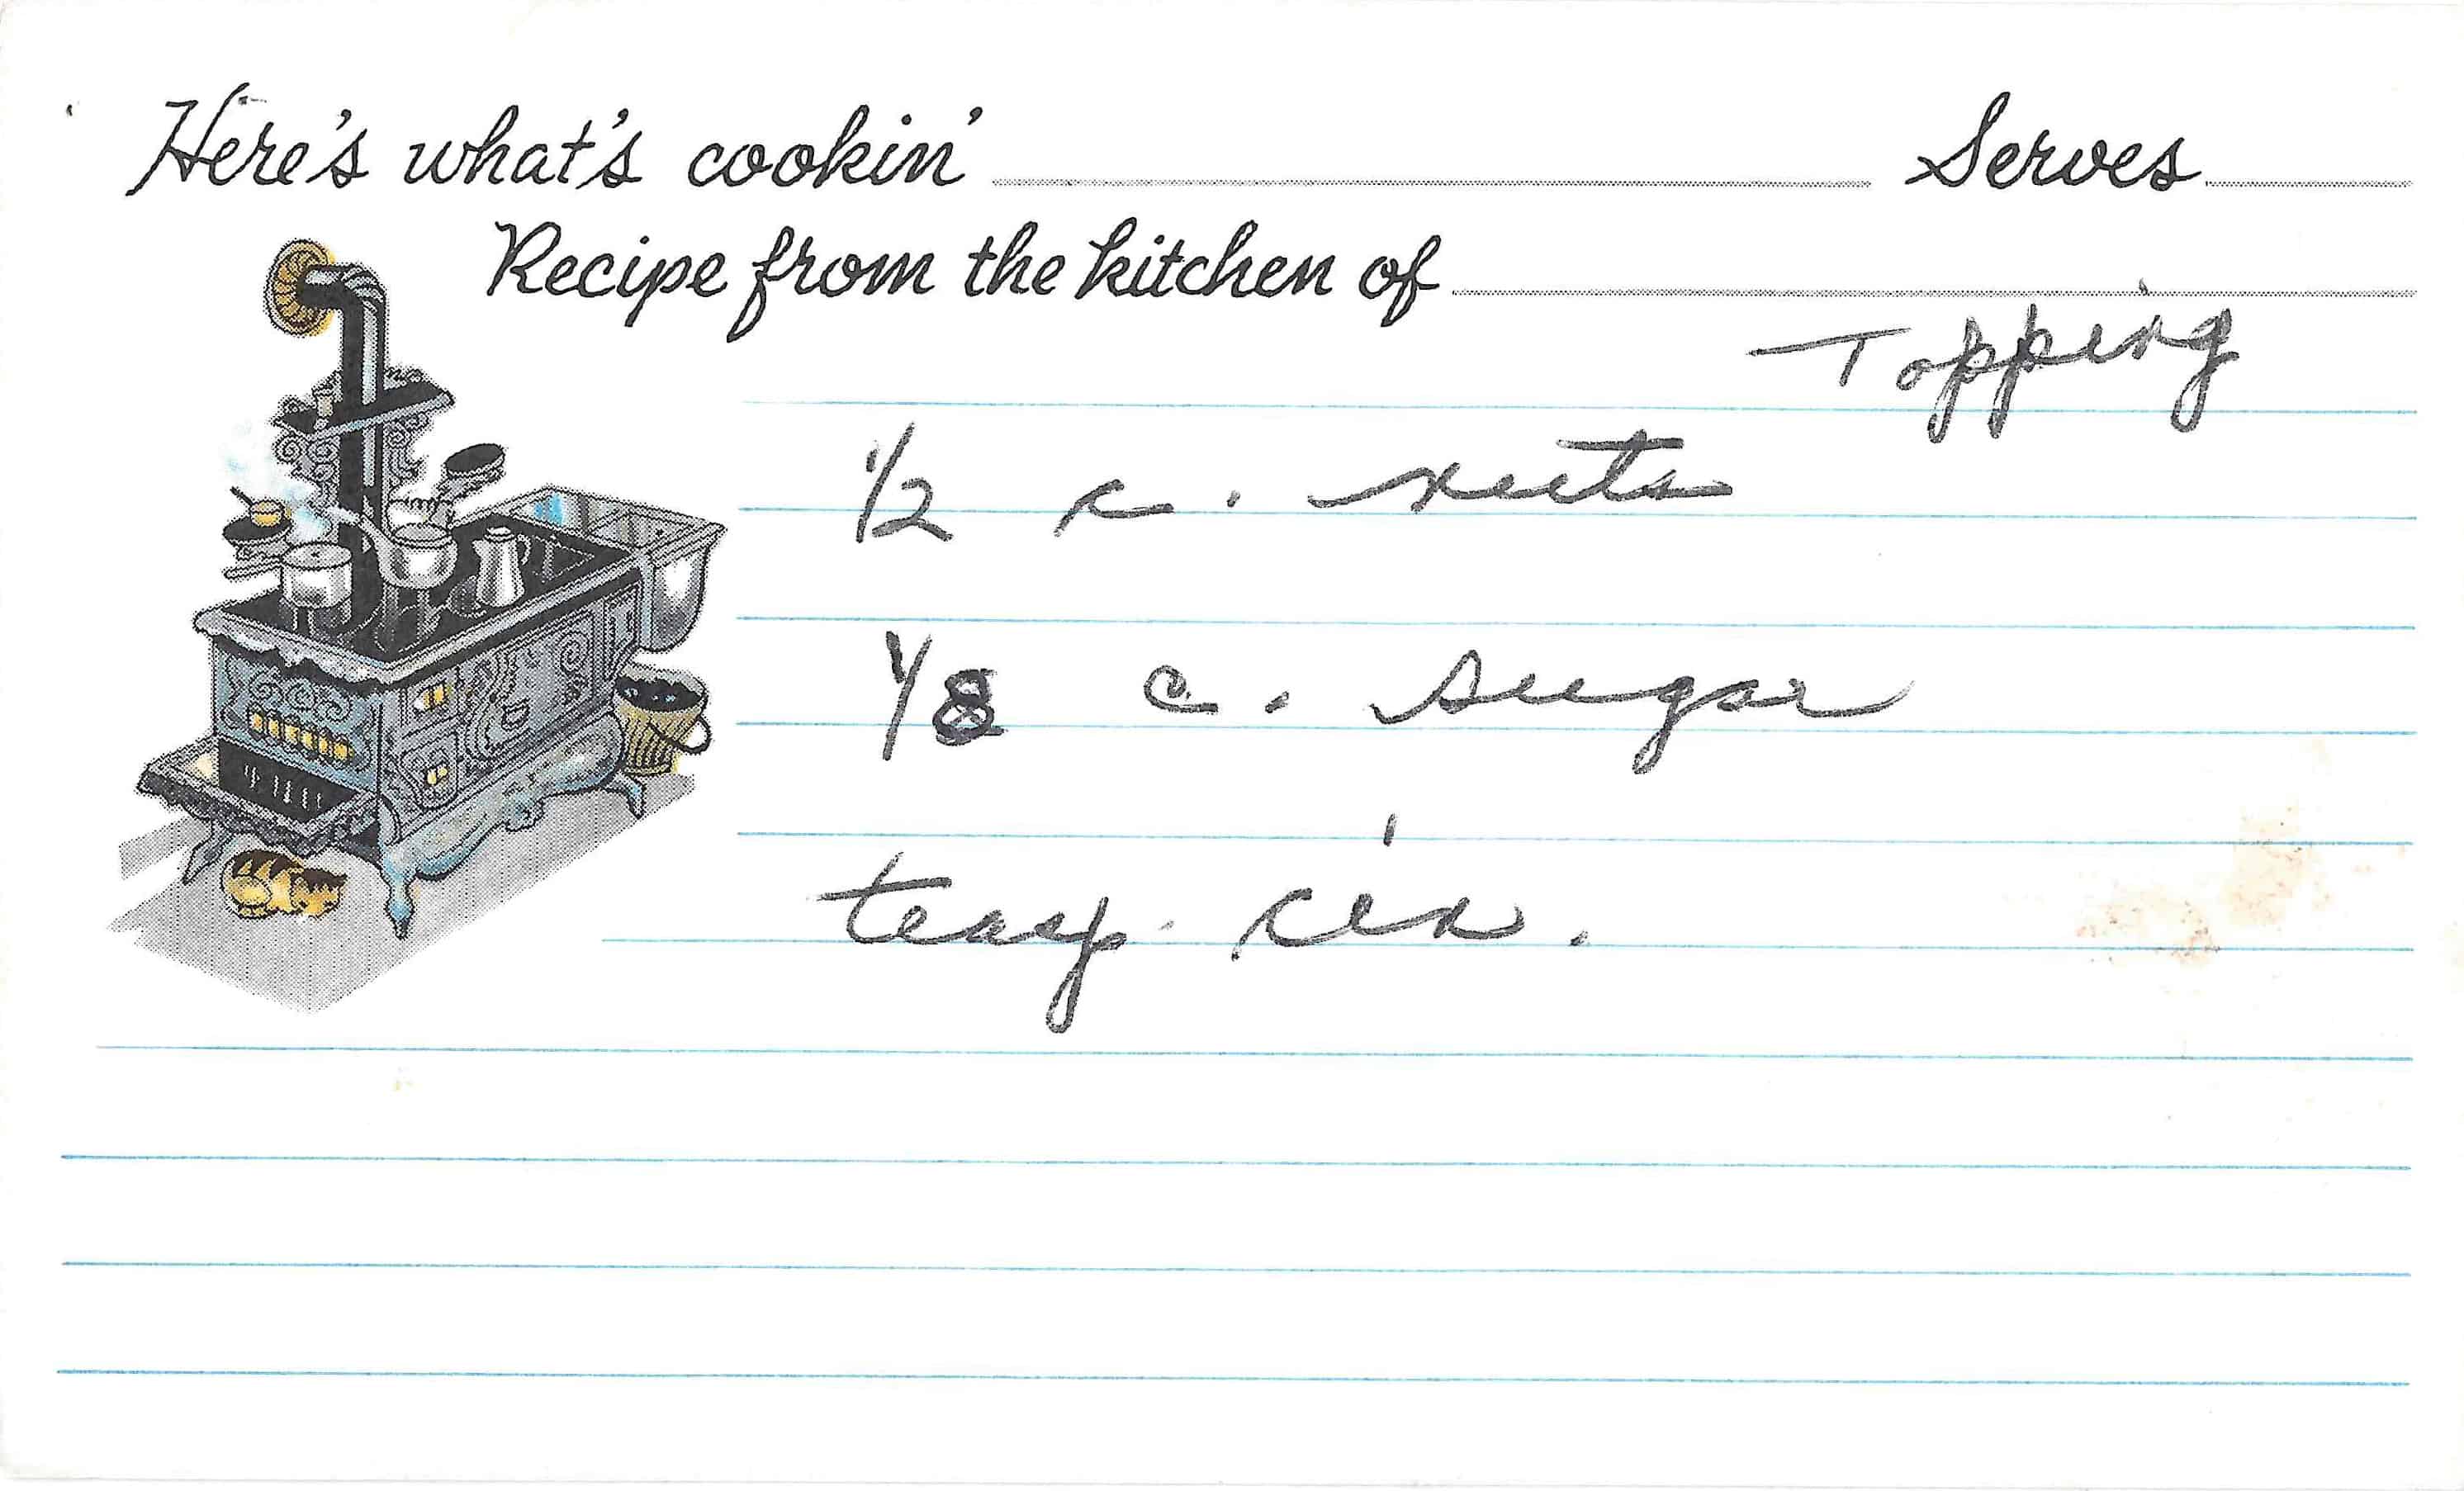 Here's what's cookin' Serves
Recipe from the kitchen of
Topping
1/2 c. nuts
1/8 c. sugar
teasp. cin.